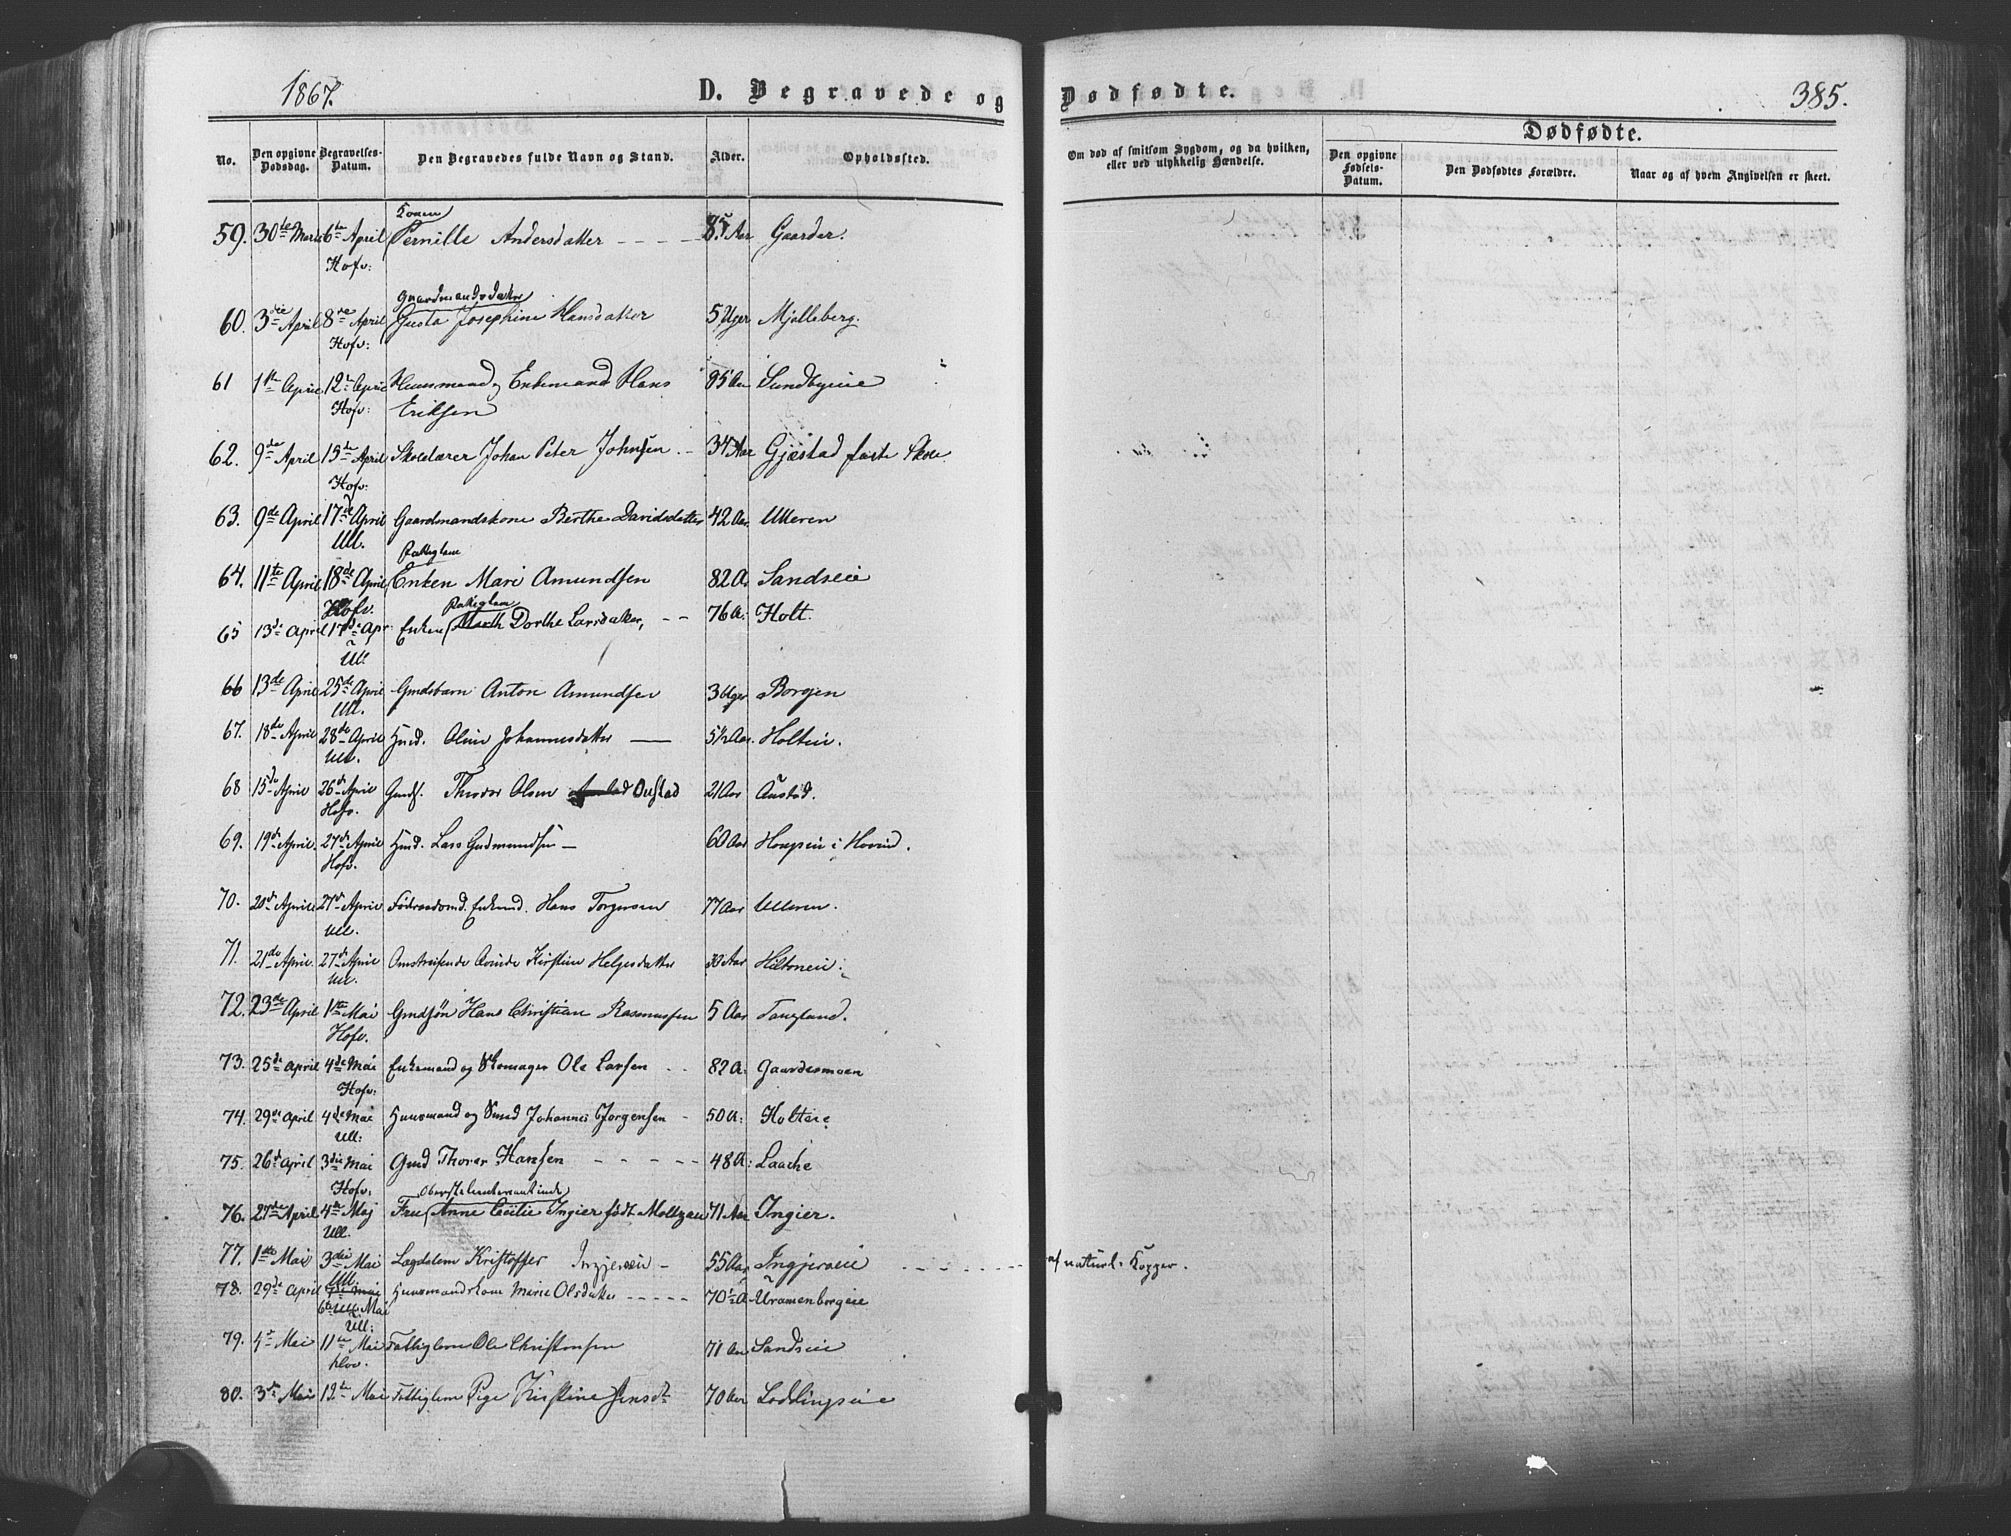 1867.
D. Begravede og Dødfødte.
385.
Dødfødte.
No.
Den opgivne Dødsdag.
Begravelses-Datum.
Den Begravedes fulde Navn og Stand.
Alder.
Opholdssted.
Om død af smitsom Sygdom, og da hvilken, eller ved ulykkelig Hændelse.
Den opgivne Fødsels-Datum.
Den Dødfødtes Forældre.
Naar og af hvem Angivelsen er skeet.
Konen
59. 30te Marts 6te April Pernille Andersdatter 85 Aar Gaarder.
Hofv:
Gaardmandsdatter
60. 3die April 8de April Gusta Josephine Hansdatter 5 Uger Mjølleberg.
Hofv:
61 1ste April 12te April Huusmand og Enkemand Hans 85 Aar Sundbyeie
Hofv: Eriksen
62. 9de April 15de April Skolelærer Johan Peter Johnsen 34 Aar Gjestad faste Skole
Hofv:
63. 9de April 17de April Gaardmandskone Berthe Davidsdatter 42 Aar Ulleren
Ull.
Fattiglem
64. 11te April 18de April Enken Mari Amundsen 82 A. Sandseie
Hofv.
Fattiglem
65 13de April 17de Apr. Enken Marth Dorthe Larsdatter, 76 A: Holt.
Ull.
66 13de April 25de April Gmdsbarn Anton Amundsen 3 Uger Borgen
Ull.
67. 18de April 28de April Husd. Oline Johannesdatter 5 1/2 Aar. Holteie.
Ull.
68 15de April 26de April Gmds. Thorer Olsen Oustad 21 Aar Austad.
Hofv.
69. 19de April. 27de April Husmd. Lars Gudmundsen 60 Aar i Hovind.
Hofv.
70. 20de April 27de April Føderaadsmd. Enkemd. Hans Torgersen 77 Aar Ulleren.
Ull.
71. 21de April. 27de April Omstreifende Qvinde Kirstine Helgesdatter 30 Aar Hiltoneie.
Ull.
72. 23de April 1ste Mai Gmdsøn Hans Christian Rasmussen 5 Aar Fougland.
Hofv.
73. 25de April 4de Mai Enkemand og Skomager Ole Larsen 82 A: Gaardermoen
Hofv:
74. 29de April 4de Mai Huusmand og Smed Johannes Jørgensen 50 A: Holteie
Ull:
75. 26de April 3die Mai Gmd Thorer Hansen 48 A: Laache
Hofv:
Oberstleutenantinde
76. 27de April 4de Maj Fru Anne Cecilie Ingier født Moltzau 71 Aar Ingier.
Ull.
77. 1ste Mai 3die Mai Lægdslem Kristoffer Ingjereie 55 Aar Ingjereie af naturl. Kopper.
Ull.
78. 29de April Huusmandskone Marie Olsdatter 70 1/2 A Uramenborgeie
6te Mai
Ull:
79. 4de Mai 11te Mai Fattiglem Ole Christensen 71 Aar Sandseie
Hov.
80. 3de Mai 12te Mai Fattiglem Pige Kirstine Jensdt. 70 Aar Loddingseie